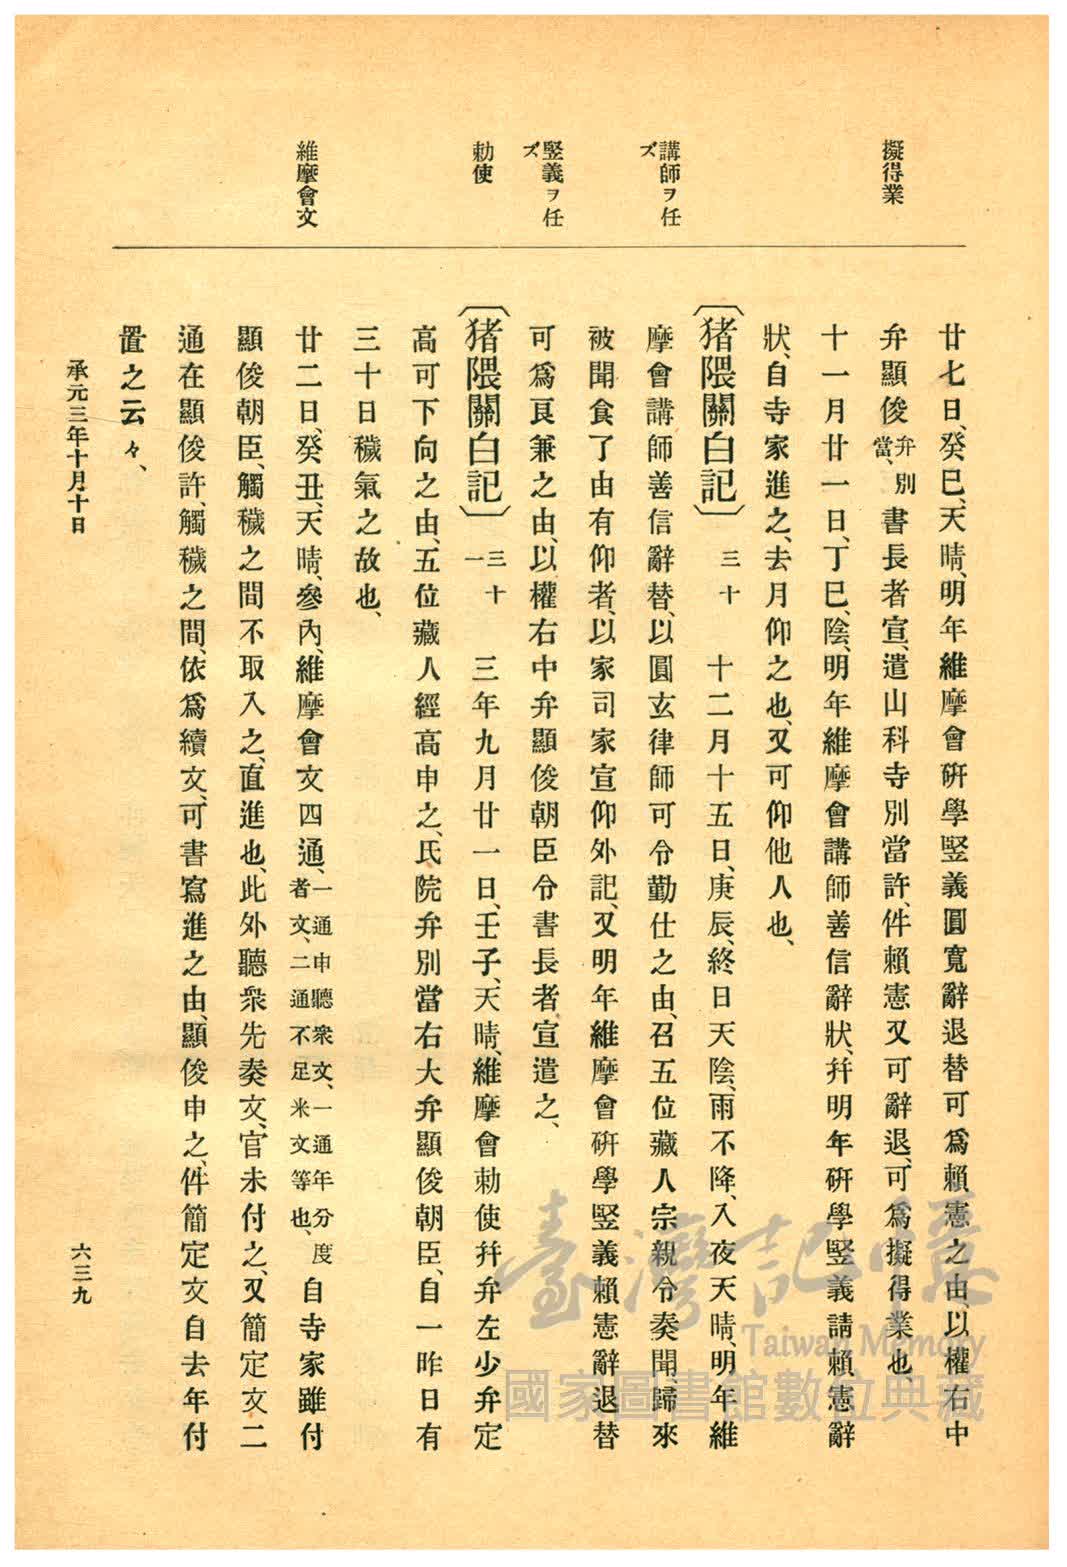 擬得業
講師ヲ任
ズ
竪義ヲ任
ズ
勅使
維摩會文
廿七日、癸巳、天晴、明年維摩會硏學竪義圓寬辭退替可爲賴憲之由、以權右中
弁顯俊弁別當、書長者宣、遣山科寺別當許、件賴憲又可辭退、可爲擬得業也
十一月廿一日、丁巳、陰、明年維摩會講師善信辭狀、幷明年硏學竪義請賴憲辭
狀、自寺家進之、去月仰之也、又可仰他人也、
〔猪隈關白記〕三十 十二月十五日、庚辰、終日天陰、雨不降、入夜天晴、明年維
摩會講師善信辭替、以圓玄律師可令勤仕之由、召五位藏人宗親令奏聞、歸來
被聞食了由有仰者、以家司家宣仰外記、又明年維摩會硏學竪義賴憲辭退替
可爲良兼之由、以權右中弁顯俊朝臣令書長者宣遣之、
〔猪隈關白記〕三十一 三年九月廿一日、壬子、天晴、維摩會勅使幷弁左少弁定
高可下向之由、五位藏人經高申之、氏院弁別當右大弁顯俊朝臣、自一昨日有
三十日穢氣之故也、
廿二日、癸丑、天晴、參內、維摩會文四通、一通申聽衆文、一通年分度者文、二通不足米文等也、自寺家雖付
顯俊朝臣、觸穢之間不取入之、直進也、此外聽衆先奏文、官未付之、又簡定文二
通在顯俊許、觸穢之間、依爲續文、可書寫進之由、顯俊申之、件簡定文自去年付
置之云々、
承元三年十月十日
六三九
臺灣記憶
Taiwan Memory
國家圖書館數位典藏